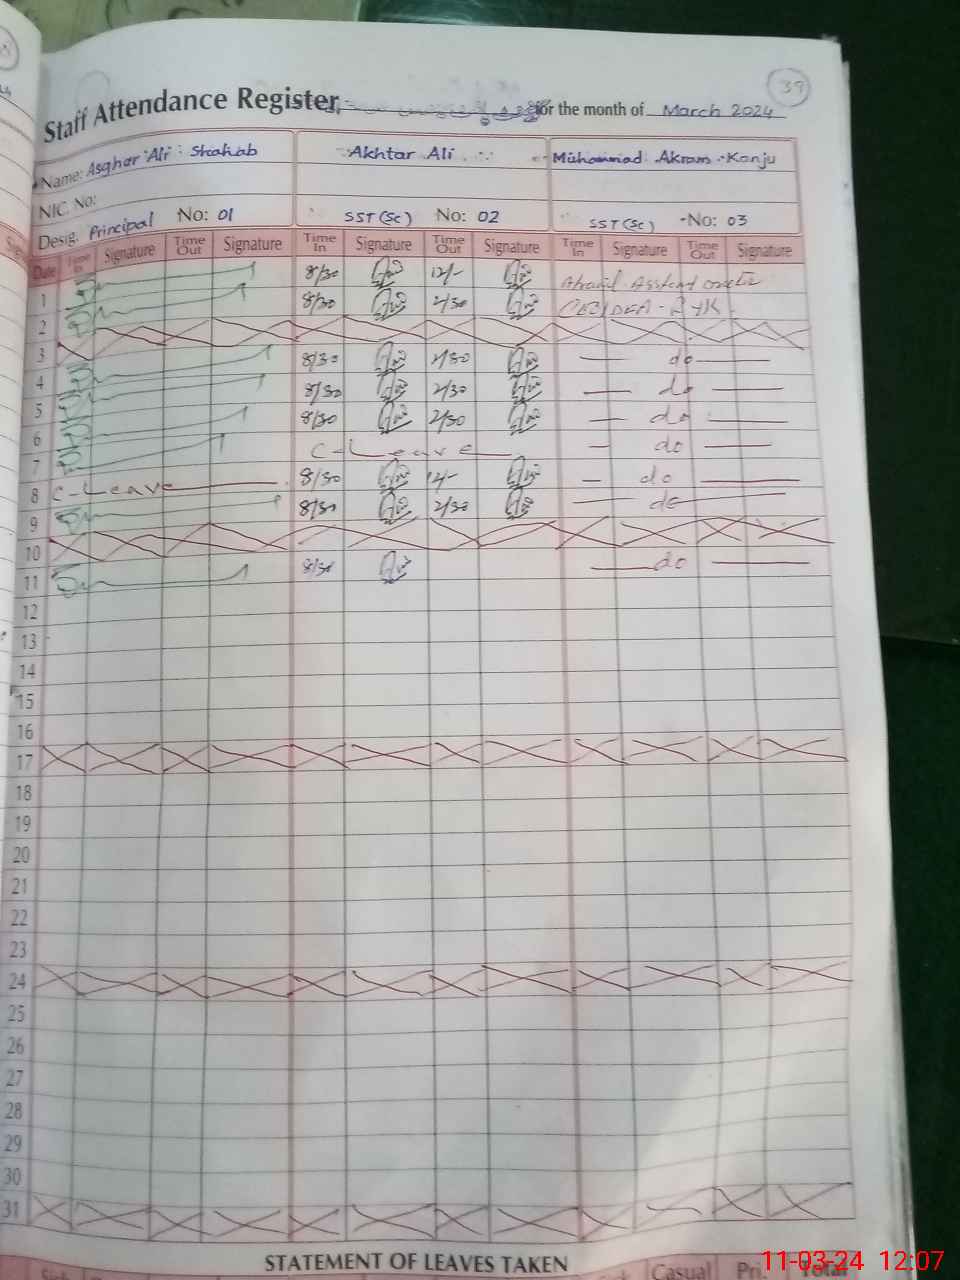 39
Staff Attendance Register for the month of March 2024
Name: Asghar Ali Shahab Akhtar Ali Muhammad Akram Kanju
NIC. No:
Desig. Principal No: 01 SST (Sc) No: 02 SST (Sc) No: 03
Date Time In Signature Time Out Signature Time In Signature Time Out Signature Time In Signature Time Out Signature
1 8/30 12/-
2 8/30 2/30
3
4 8/30 2/30 do
5 8/30 2/30 do
6 8/30 2/30 do
7 C-Leave do
8 C-Leave 8/30 12/- do
9 8/30 2/30 do
10
11 8/30 do
12
13
14
15
16
17
18
19
20
21
22
23
24
25
26
27
28
29
30
31
STATEMENT OF LEAVES TAKEN
Casual Total
11-03-24 12:07